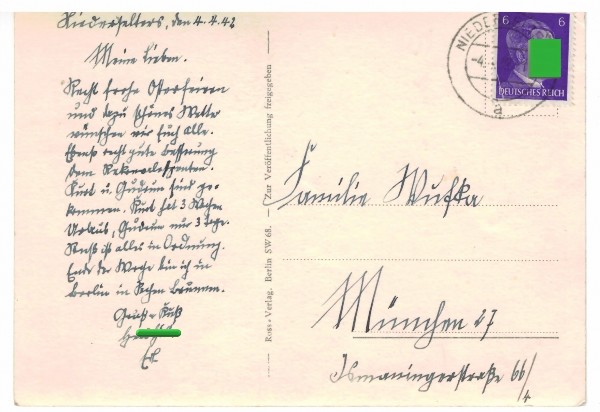 Niederselters, den 4.4.42
Meine Lieben.
Recht frohe Osterfeiern
und dazu schönes Wetter
wünschen wir Euch alle.
Ebenso recht gute Besserung
dem Rekonvaleszenten.
Kurt u. Gudrun sind ge-
kommen. Kurt hat 3 Wochen
Urlaub, Gudrun nur 3 Tage.
Sonst ist alles in Ordnung.
Ende der Woche bin ich in
Berlin in Sachen Brunnen.
Gruß u. Kuß
Zur Veröffentlichung freigegeben
Ross-Verlag, Berlin SW 68.
NIEDER
-4.
a
6 6
DEUTSCHES REICH
Familie Wufka
München 27
Ismaningerstraße 66/4